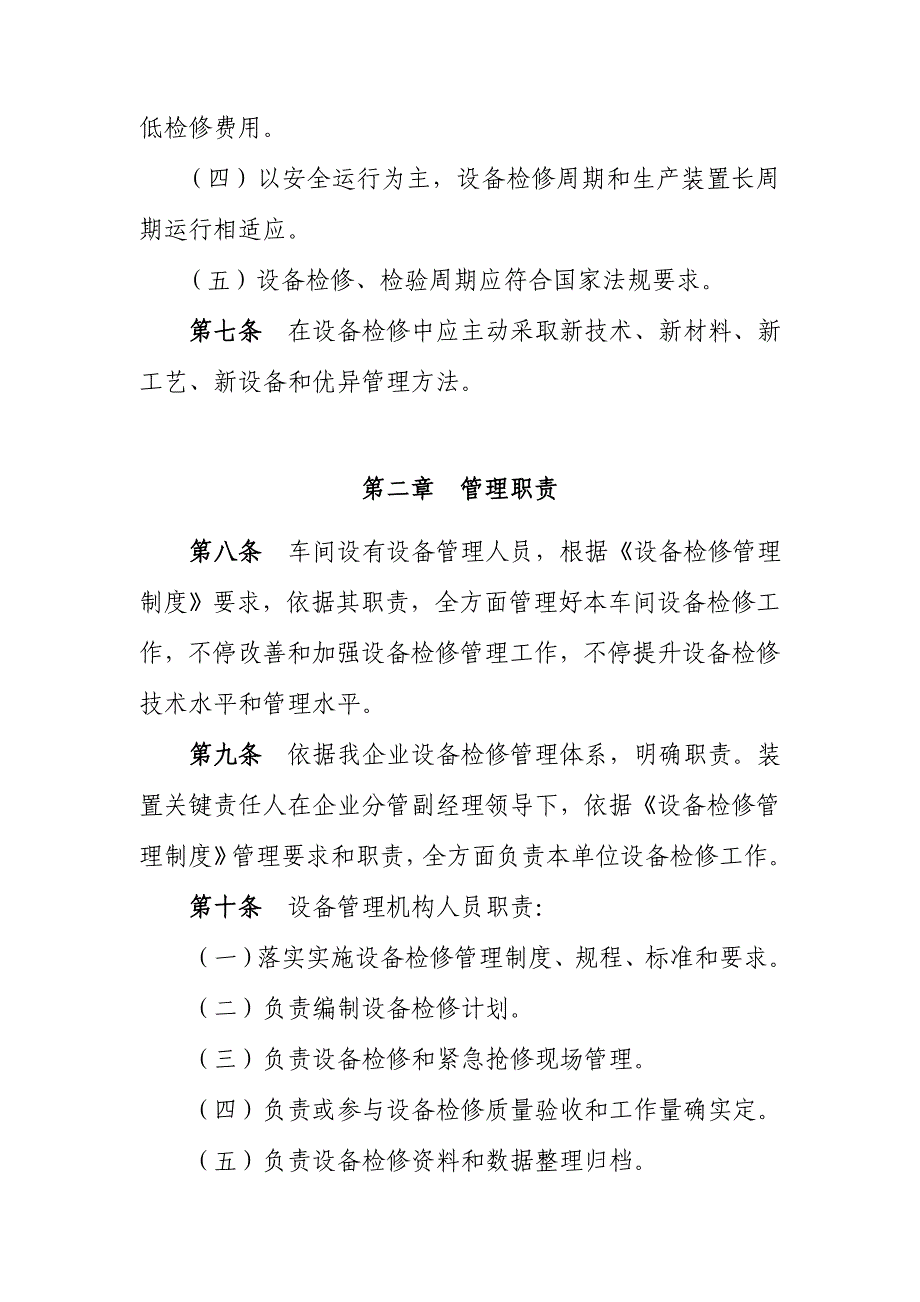 低检修费用。
（四）以安全运行为主，设备检修周期和生产装置长周
期运行相适应。
（五）设备检修、检验周期应符合国家法规要求。
第七条　在设备检修中应主动采取新技术、新材料、新
工艺、新设备和优异管理方法。
第二章　管理职责
第八条　车间设有设备管理人员，根据《设备检修管理
制度》要求，依据其职责，全方面管理好本车间设备检修工
作，不停改善和加强设备检修管理工作，不停提升设备检修
技术水平和管理水平。
第九条　依据我企业设备检修管理体系，明确职责。装
置关键责任人在企业分管副经理领导下，依据《设备检修管
理制度》管理要求和职责，全方面负责本单位设备检修工作。
第十条　设备管理机构人员职责：
（一）落实实施设备检修管理制度、规程、标准和要求。
（二）负责编制设备检修计划。
（三）负责设备检修和紧急抢修现场管理。
（四）负责或参与设备检修质量验收和工作量确实定。
（五）负责设备检修资料和数据整理归档。